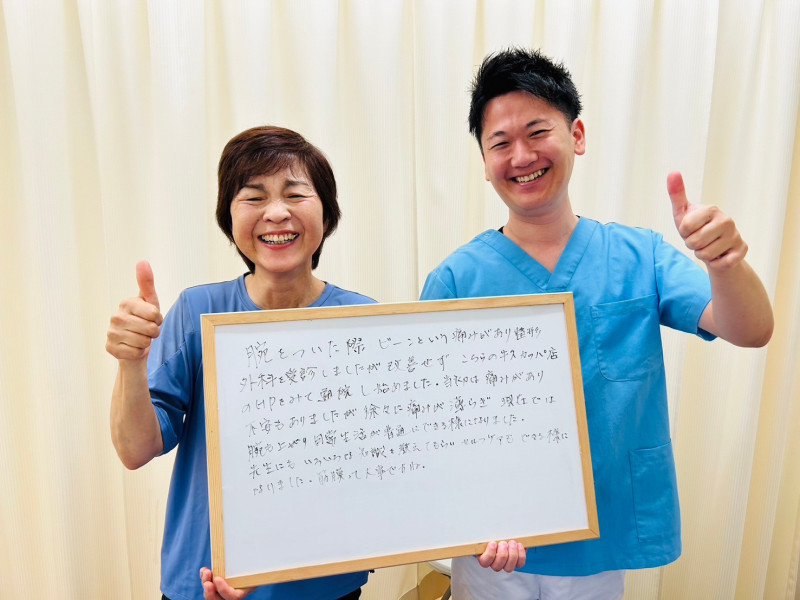 腕をついた際 ビーンという痛みがあり整形
外科を受診しましたが改善せず こちらの牛スカッパ店
のHPをみて 通院し始めました。当初は痛みがあり
不安もありましたが 徐々に痛みが薄らぎ 現在では
腕も上がり 日常生活が普通にできる様になりました。
先生にも いろいろな知識を教えてもらい セルフケアも できる様に
なりました。筋膜って大事ですね。